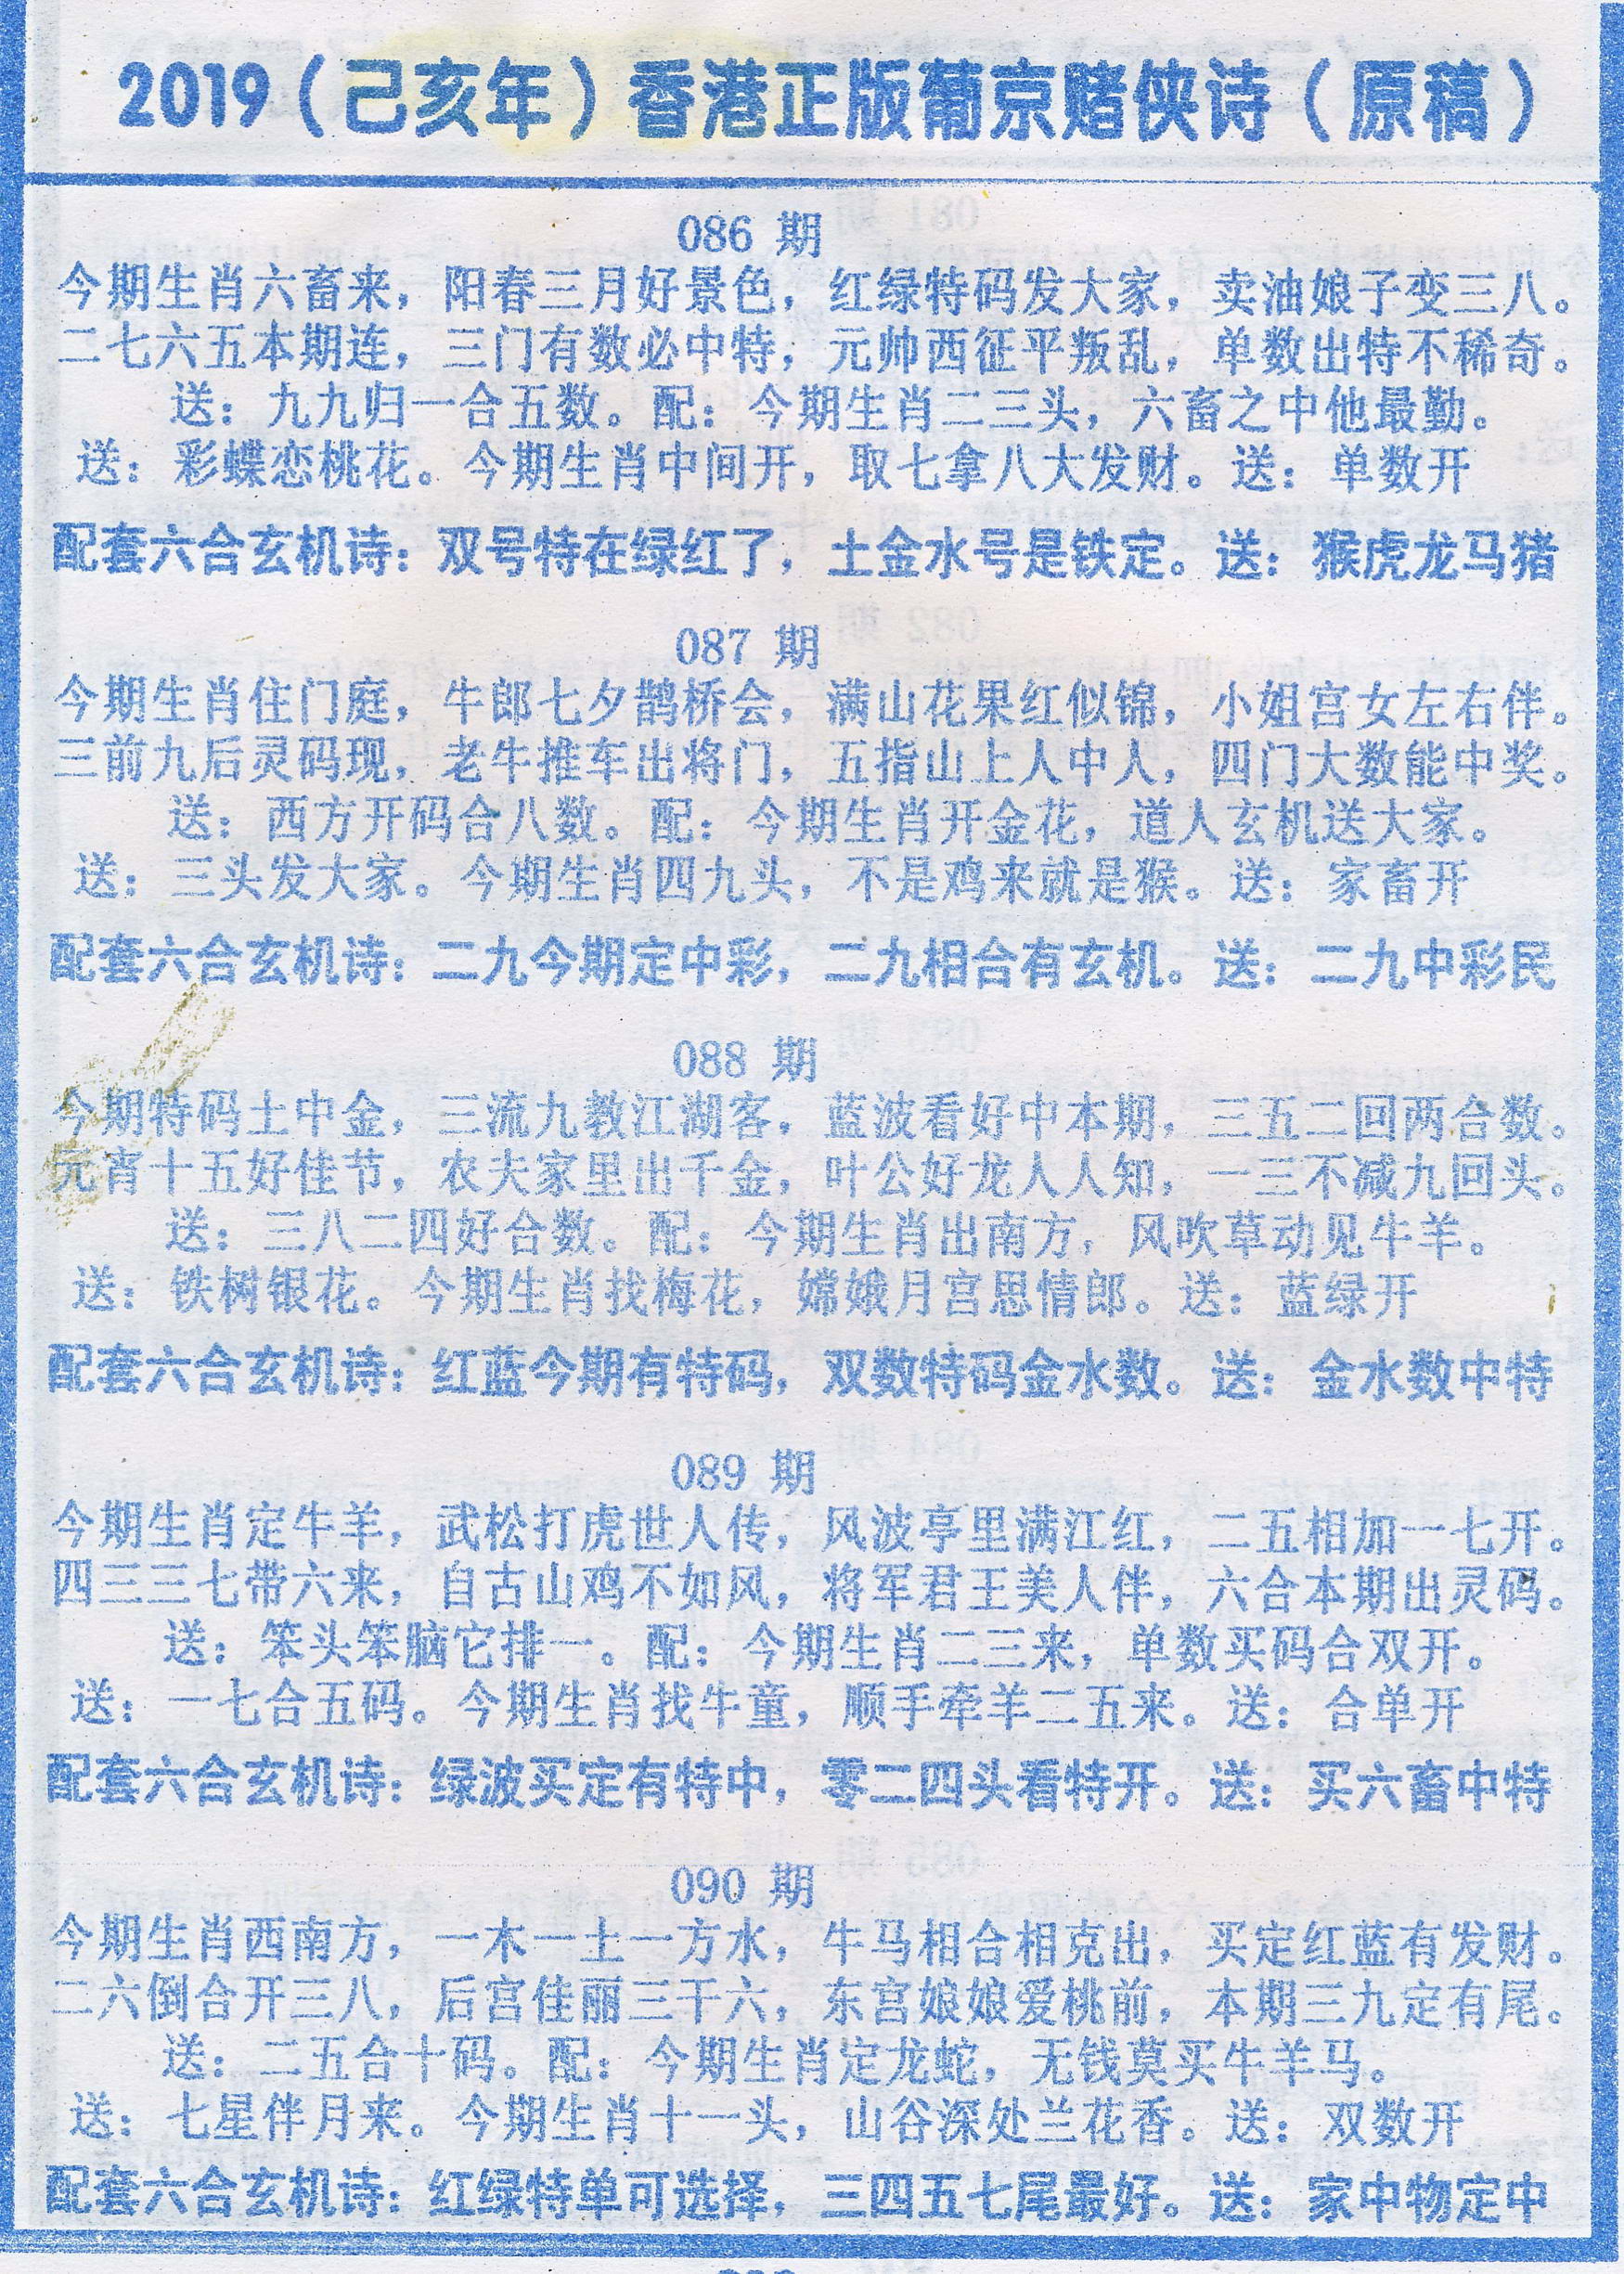 2019（己亥年）香港正版葡京赌侠诗（原稿）
086 期
今期生肖六畜来，阳春三月好景色，红绿特码发大家，卖油娘子变三八。
二七六五本期连，三门有数必中特，元帅西征平叛乱，单数出特不稀奇。
送：九九归一合五数。配：今期生肖二三头，六畜之中他最勤。
送：彩蝶恋桃花。今期生肖中间开，取七拿八大发财。送：单数开
配套六合玄机诗：双号特在绿红了，土金水号是铁定。送：猴虎龙马猪
087 期
今期生肖住门庭，牛郎七夕鹊桥会，满山花果红似锦，小姐宫女左右伴。
三前九后灵码现，老牛推车出将门，五指山上人中人，四门大数能中奖。
送：西方开码合八数。配：今期生肖开金花，道人玄机送大家。
送：三头发大家。今期生肖四九头，不是鸡来就是猴。送：家畜开
配套六合玄机诗：二九今期定中彩，二九相合有玄机。送：二九中彩民
088 期
今期特码土中金，三流九教江湖客，蓝波看好中本期，三五二回两合数。
元宵十五好佳节，农夫家里出千金，叶公好龙人人知，一三不减九回头。
送：三八二四好合数。配：今期生肖出南方，风吹草动见牛羊。
送：铁树银花。今期生肖找梅花，嫦娥月宫思情郎。送：蓝绿开
配套六合玄机诗：红蓝今期有特码，双数特码金水数。送：金水数中特
089 期
今期生肖定牛羊，武松打虎世人传，风波亭里满江红，二五相加一七开。
四三三七带六来，自古山鸡不如风，将军君王美人伴，六合本期出灵码。
送：笨头笨脑它排一。配：今期生肖二三来，单数买码合双开。
送：一七合五码。今期生肖找牛童，顺手牵羊二五来。送：合单开
配套六合玄机诗：绿波买定有特中，零二四头看特开。送：买六畜中特
090 期
今期生肖西南方，一木一土一方水，牛马相合相克出，买定红蓝有发财。
二六倒合开三八，后宫佳丽三千六，东宫娘娘爱桃前，本期三九定有尾。
送：二五合十码。配：今期生肖定龙蛇，无钱莫买牛羊马。
送：七星伴月来。今期生肖十一头，山谷深处兰花香。送：双数开
配套六合玄机诗：红绿特单可选择，三四五七尾最好。送：家中物定中